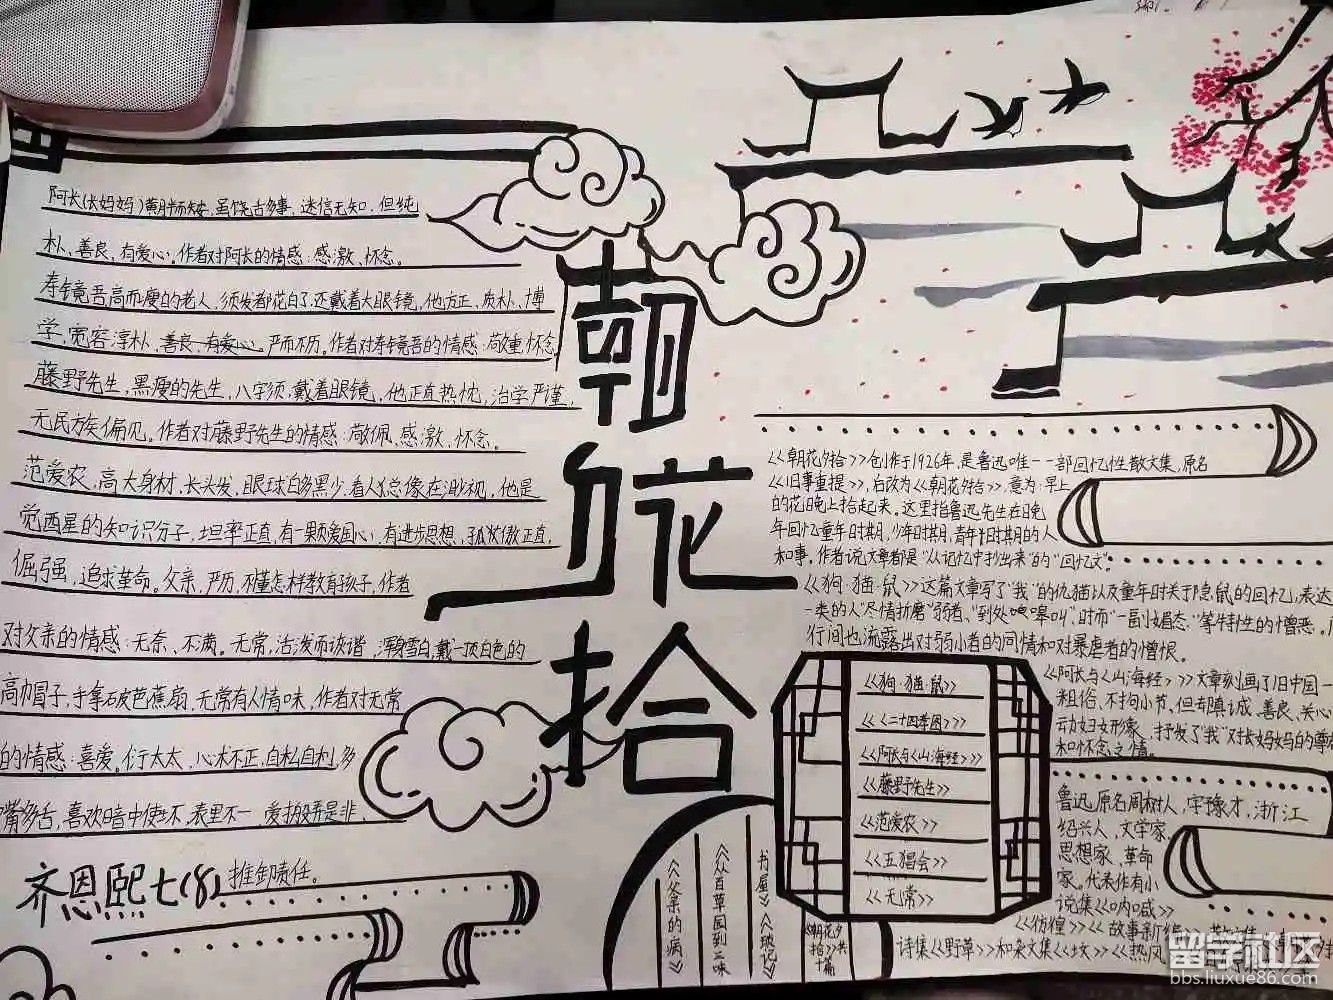 阿长(长妈妈)黄胖而矮,虽饶舌多事,迷信无知,但纯
朴、善良、有爱心。作者对阿长的情感:感激、怀念。
寿镜吾高而瘦的老人,须发都花白了,还戴着大眼镜,他方正,质朴、博
学,宽容,淳朴、善良、有爱心,严而不历。作者对寿镜吾的情感:敬重,怀念
藤野先生,黑瘦的先生,八字须,戴着眼镜,他正直热忱,治学严谨,
无民族偏见。作者对藤野先生的情感:敬佩、感激、怀念。
范爱农,高大身材,长头发,眼球白多黑少,看人总像在渺视,他是
觉西星的知识分子,坦率正直,有一颗爱国心,有进步思想,孤傲正直,
倔强,追求革命。父亲,严历,不懂怎样教育孩子,作者
对父亲的情感:无奈、不满。无常,活发而诙谐,浑身雪白,戴一顶白色的
高帽子,手拿破芭蕉扇,无常有人情味,作者对无常
的情感:喜爱。衍太太,心术不正,自私自利,多
嘴多舌,喜欢暗中使坏,表里不一,爱搬弄是非,
推卸责任。
齐恩熙七(8)
朝
夕花
拾
<<朝花夕拾>>创作于1926年,是鲁迅唯一一部回忆性散文集,原名
<<旧事重提>>,后改为<<朝花夕拾>>,意为:早上
的花晚上拾起来。这里指鲁迅先生在晚
年回忆童年时期,少年时期,青年时期的人
和事。作者说文章都是“从记忆中抄出来”的“回忆文”。
<<狗·猫·鼠>>这篇文章写了“我”的仇猫以及童年时关于隐鼠的回忆,表达
一类的人“尽情折磨”弱者、“到处嗥叫”,时而“一副小媚态”等特性的憎恶,
行间也流露出对弱小者的同情和对暴虐者的憎恨。
<<阿长与<山海经>>>文章刻画了旧中国一
粗俗、不拘小节,但却真诚、善良、关心
动妇女形象,抒发了“我”对长妈妈的尊
和怀念之情。
<<狗·猫·鼠>>
<<二十四孝图>>>
<<阿长与<山海经>>>
<<藤野先生>>
<<范爱农>>
<<五猖会>>
<<无常>>
<<父亲的病>>
<<从百草园到三味
书屋>><<琐记>>
<<朝花夕
拾>>共
十篇
鲁迅,原名周树人,字豫才,浙江
绍兴人,文学家
思想家、革命
家。代表作有小
说集<<呐喊>>
<<彷徨>><<故事新编
诗集<<野草>>和杂文集<<坟>><<热风
留学社区
bbs.liuxue86.com